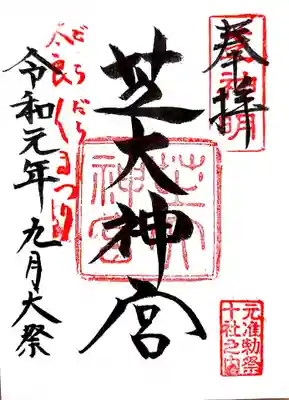 奉拝
元准勅祭
十社之内
芝大神宮
芝大
神宮
だらだら
太良〱まつり
令和元年九月大祭